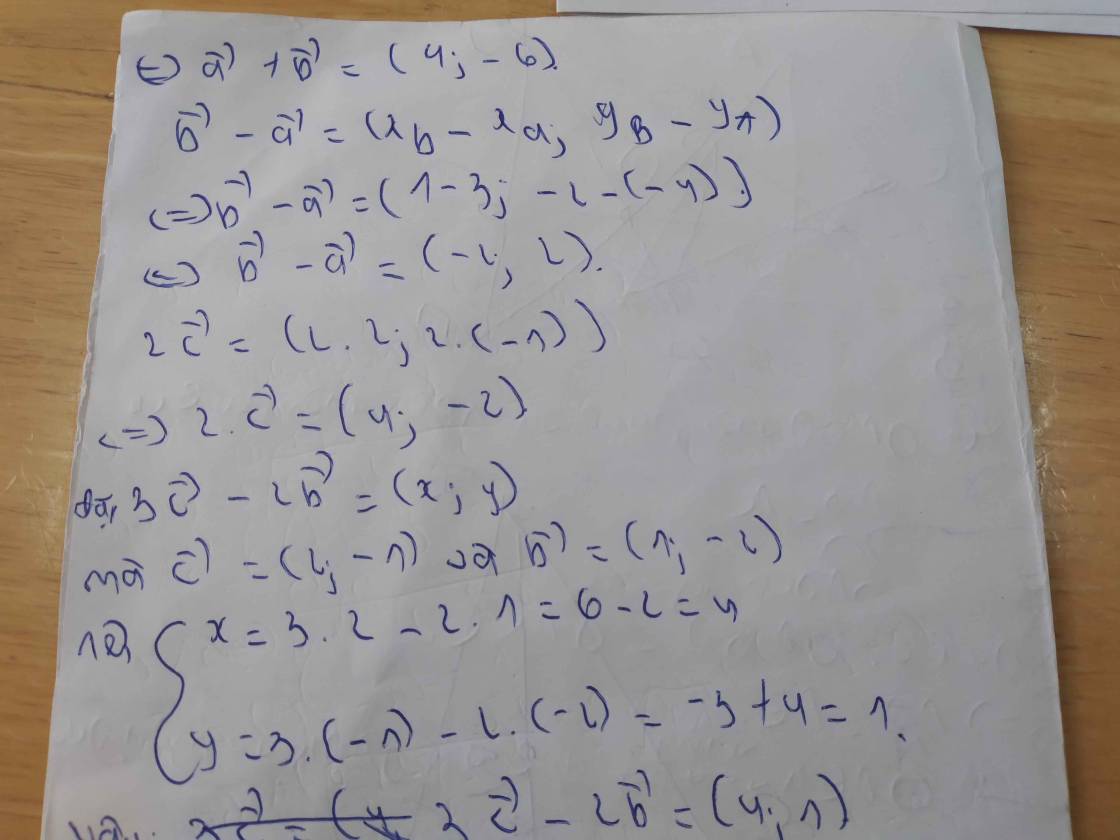 <=> a⃗ + b⃗ = (4; -6).
b⃗ - a⃗ = (x_b - x_a; y_B - y_A)
<=> b⃗ - a⃗ = (1-3; -2-(-4)).
<=> b⃗ - a⃗ = (-2; 2).
2c⃗ = (2.2; 2.(-1))
<=> 2.c⃗ = (4; -2).
đặt 3c⃗ - 2b⃗ = (x; y)
mà c⃗ = (2; -1) và b⃗ = (1; -2)
nên { x = 3.2 - 2.1 = 6 - 2 = 4
y = 3.(-1) - 2.(-2) = -3 + 4 = 1.
3c⃗ - 2b⃗ = (4; 1)